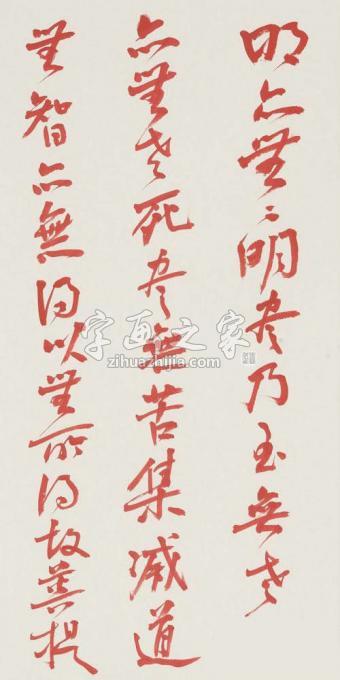 明亦無無明盡乃至無老
亦無老死盡無苦集滅道
無智亦無得以無所得故菩提
字画之家
zihuazhijia.com